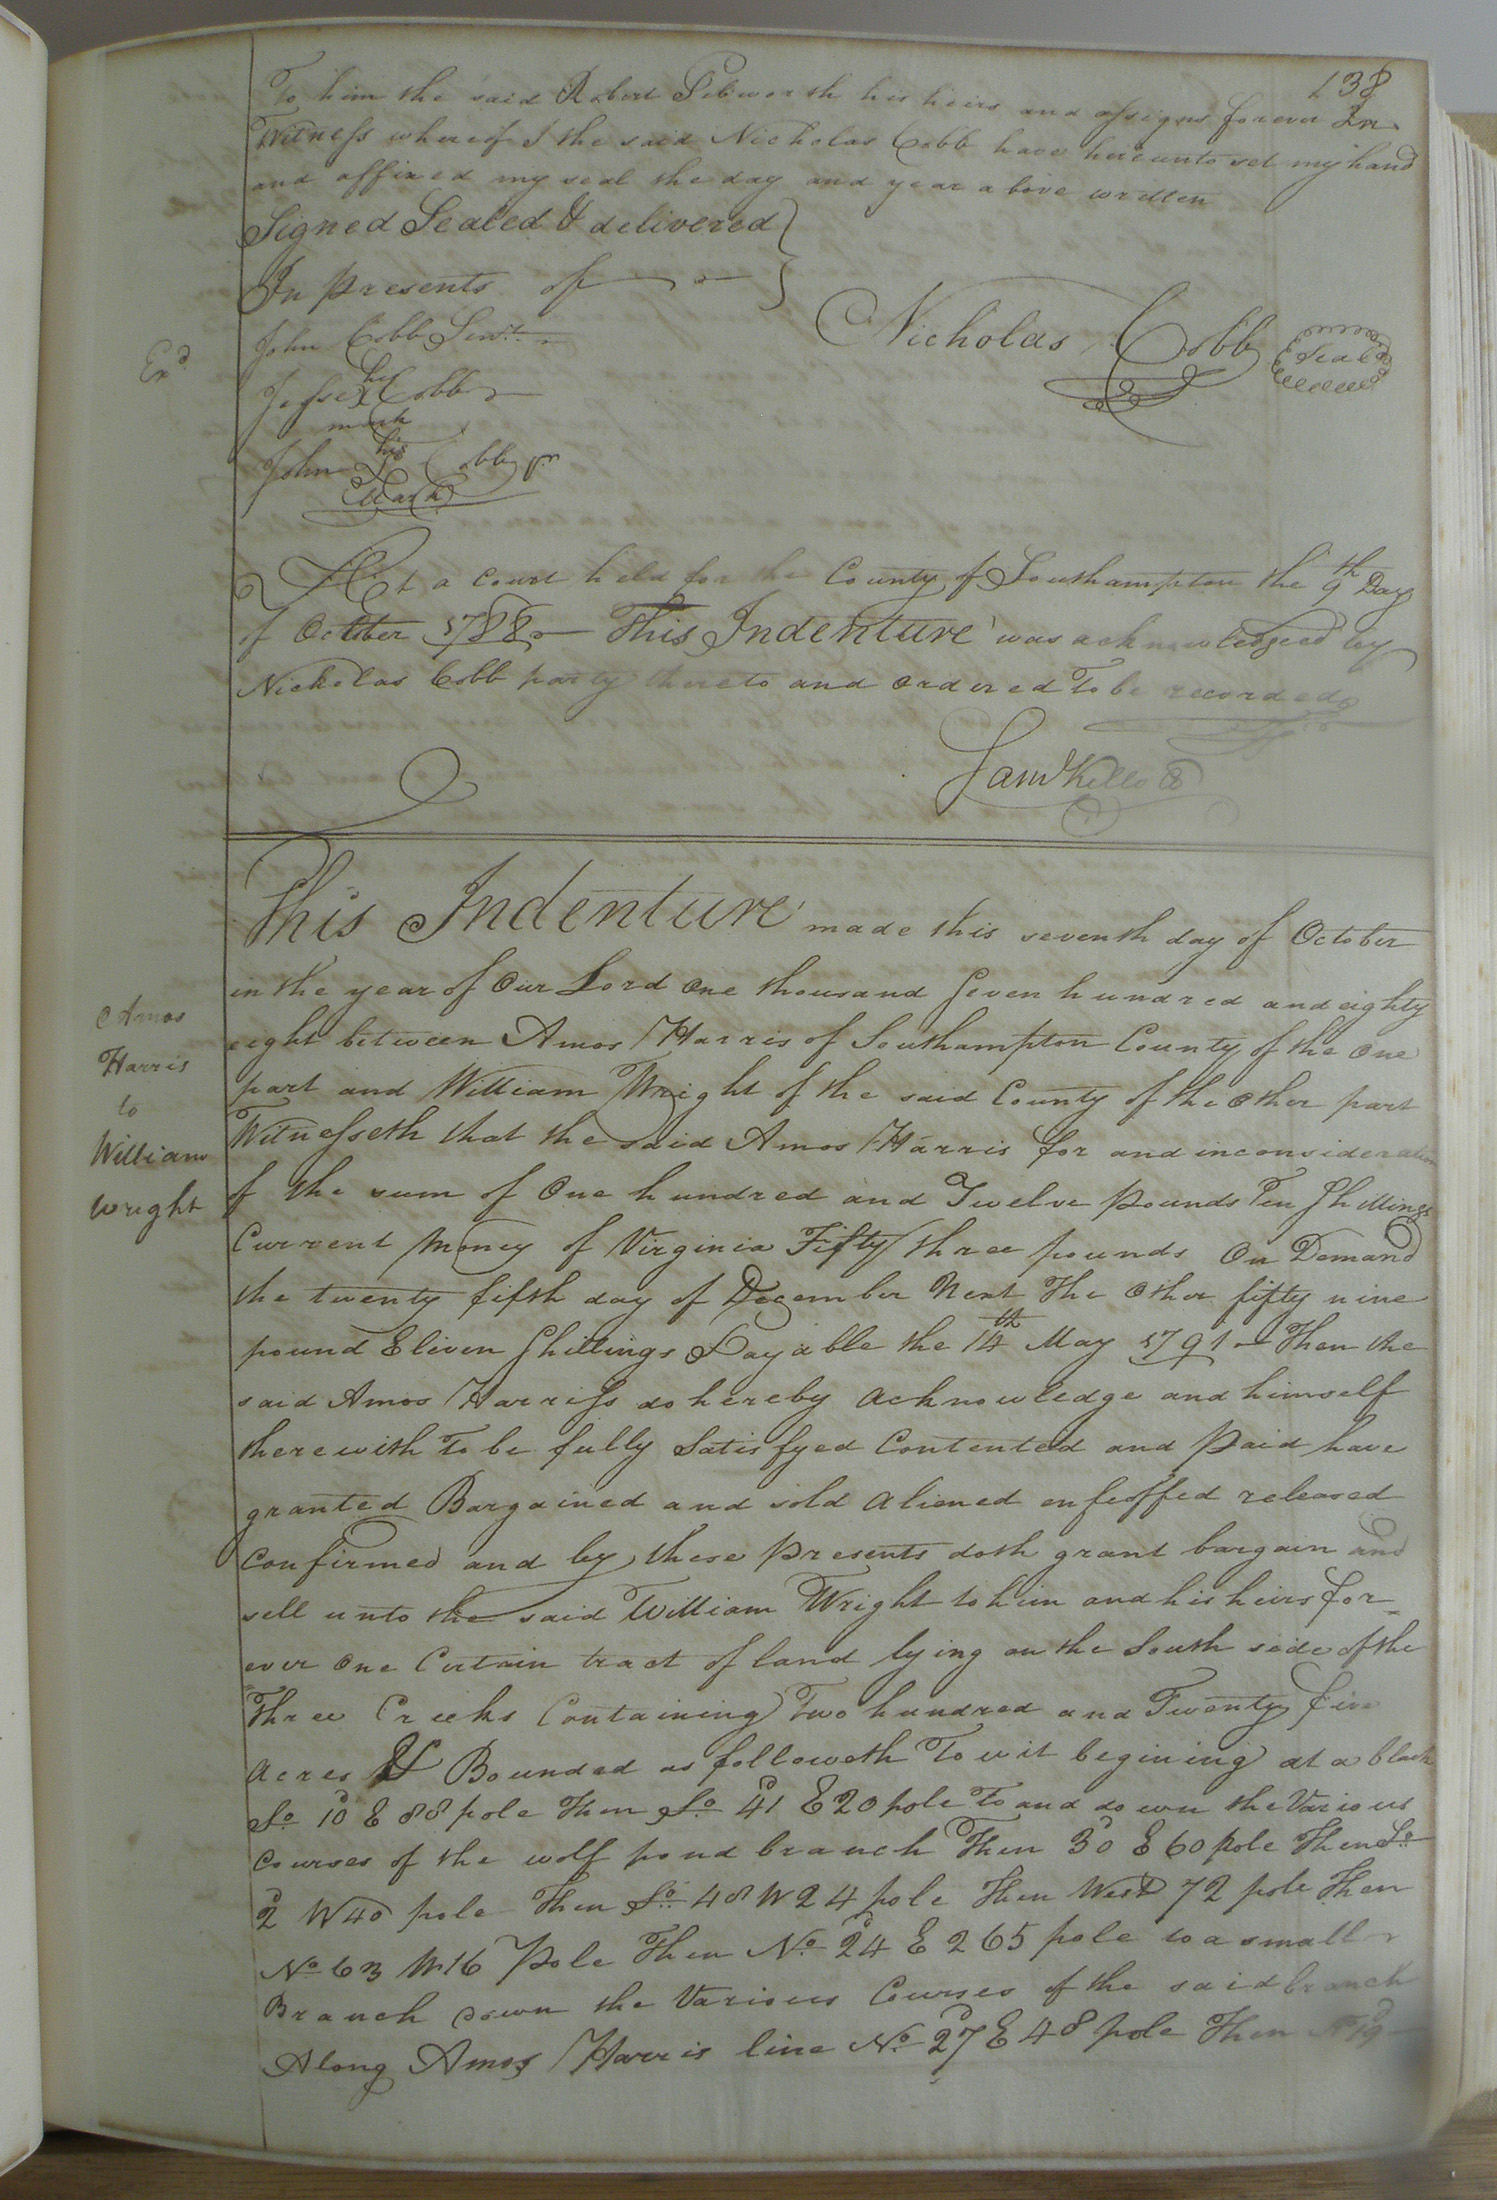 138
To him the said Robert Pebworth his heirs and assigns forever In
Witness whereof I the said Nicholas Cobb have hereunto set my hand
and affixed my seal the day and year above written
Signed Sealed & delivered
In presents of
Nicholas Cobb Seal
John Cobb Senr.
Exd
his
Jesse X Cobb
mark
his
John Cobb jr
Mark
At a Court held for the County of Southampton the 9th Day
of October 1788 This Indenture was acknowledged by
Nicholas Cobb party thereto and ordered To be recorded
Saml Kello
This Indenture made this seventh day of October
in the year of Our Lord One thousand Seven hundred and eighty
eight between Amos Harris of Southampton County of the One
part and William Wright of the said County of the Other part
Witnesseth that the said Amos Harris for and in consideration
of the sum of One hundred and Twelve pounds Ten Shillings
Current Money of Virginia Fifty three pounds On Demand
the twenty fifth day of December Next The Other fifty nine
pound Eleven Shillings Payable the 14th May 1791 Then the
said Amos Harriss do hereby acknowledge and himself
therewith To be fully Satisfyed Contented and Paid have
granted Bargained and sold aliened enfeoffed released
Confirmed and by these presents doth grant bargain and
sell unto the said William Wright to him and his heirs for
ever One Certain tract of land lying on the South side of the
Three Creeks Containing Two hundred and Twenty five
Acres & Bounded as followeth To wit begining at a black
So. 10 E 88 pole Then So. 41 E 20 pole To and down the Various
Courses of the wolf pond branch Then 30 E 60 pole Then So.
2 W 40 pole Then So. 48 W 24 pole Then West 72 pole Then
No. 63 W 16 Pole Then No. 24 E 265 pole to a small
Branch down the Various Courses of the said branch
Along Amos Harris line No. 27 E 48 pole Then No 19
Amos
Harris
to
William
Wright